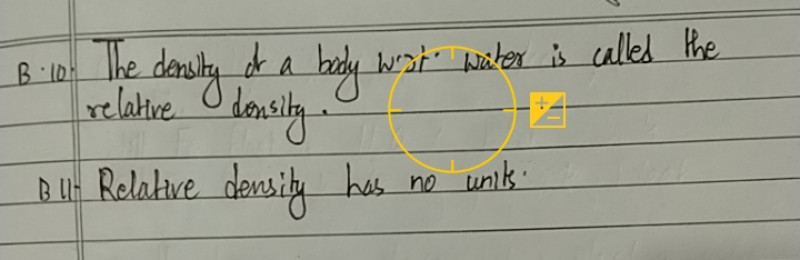 B.10. The density of a body w.r.t. water is called the
relative density.
B 11 Relative density has no units.